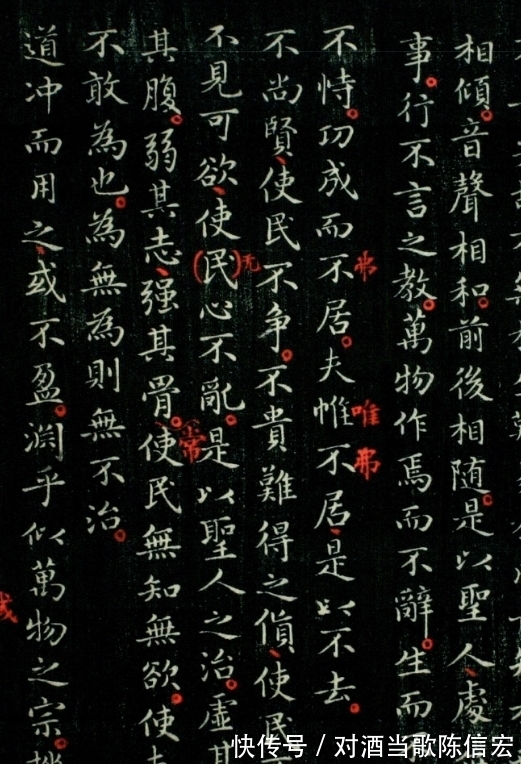 相傾。音聲相和。前後相随。是以聖人、處
事。行不言之教。萬物作焉而不辭。生而
弗
唯
弗
不恃。功成而不居。夫惟不居、是以不去。
不尚賢、使民不争。不貴難得之貨、使民
无
不見可欲、使(民)心不亂。是以聖人之治。虛其
常
其腹。弱其志、强其骨。使民無知無欲。使
不敢為也。為無為則無不治。
道冲而用之、或不盈。渊乎似萬物之宗。
快传号 / 对酒当歌陈信宏